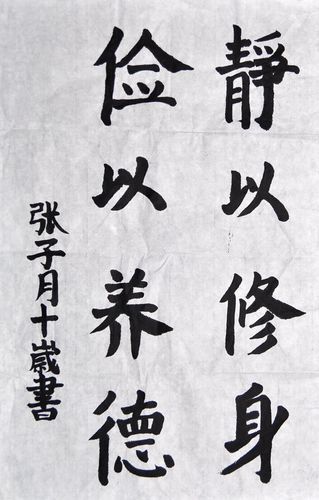 靜以修身
俭以养德
张子月十歲書